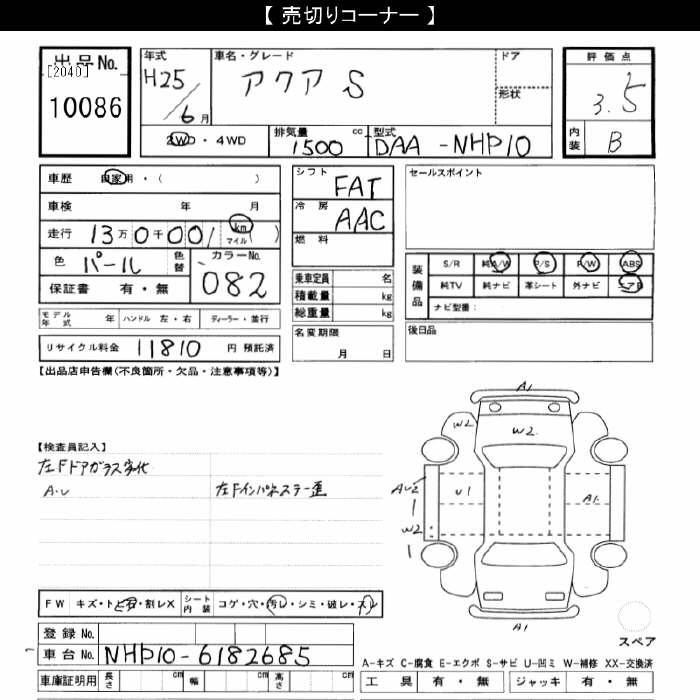 【 売切りコーナー 】
出品No.
[2040]
10086
年式
H25/6月
車名・グレード
アクア S
ドア
形状
評価点
3.5
内装
B
2WD・4WD
排気量
1500 cc
型式
DAA-NHP10
車歴 自家用・( )
車検 年 月
走行 13万0千001 km マイル )
色 パール 色替
カラーNo.
082
保証書 有・無
モデル年式 年 ハンドル 左・右 ディーラー・並行
リサイクル料金 11810 円 預託済
シフト
FAT
冷房
AAC
燃料
乗車定員 名
積載量 kg
総重量 kg
名変期限
月 日
セールスポイント
装備品
S/R 純A/W P/S P/W ABS
純TV 純ナビ 革シート 外ナビ エアB
ナビ型番:
後日品
【出品店申告欄(不良箇所・欠品・注意事項等)】
【検査員記入】
左Fドアガラス劣化
A.U
左Fインパネステー歪
A1
W2
W2
AU2
U1
A1
W2
A1
スペア
FW キズ・トビ石・割レX
シート内装 コゲ・穴・汚レ・シミ・破レ・スレ
登録No.
車台No. NHP10-6182685
車庫証明用 長さ cm 幅 cm 高さ cm
A-キズ C-腐食 E-エクボ S-サビ U-凹ミ W-補修 XX-交換済
工具 有・無 ジャッキ 有・無